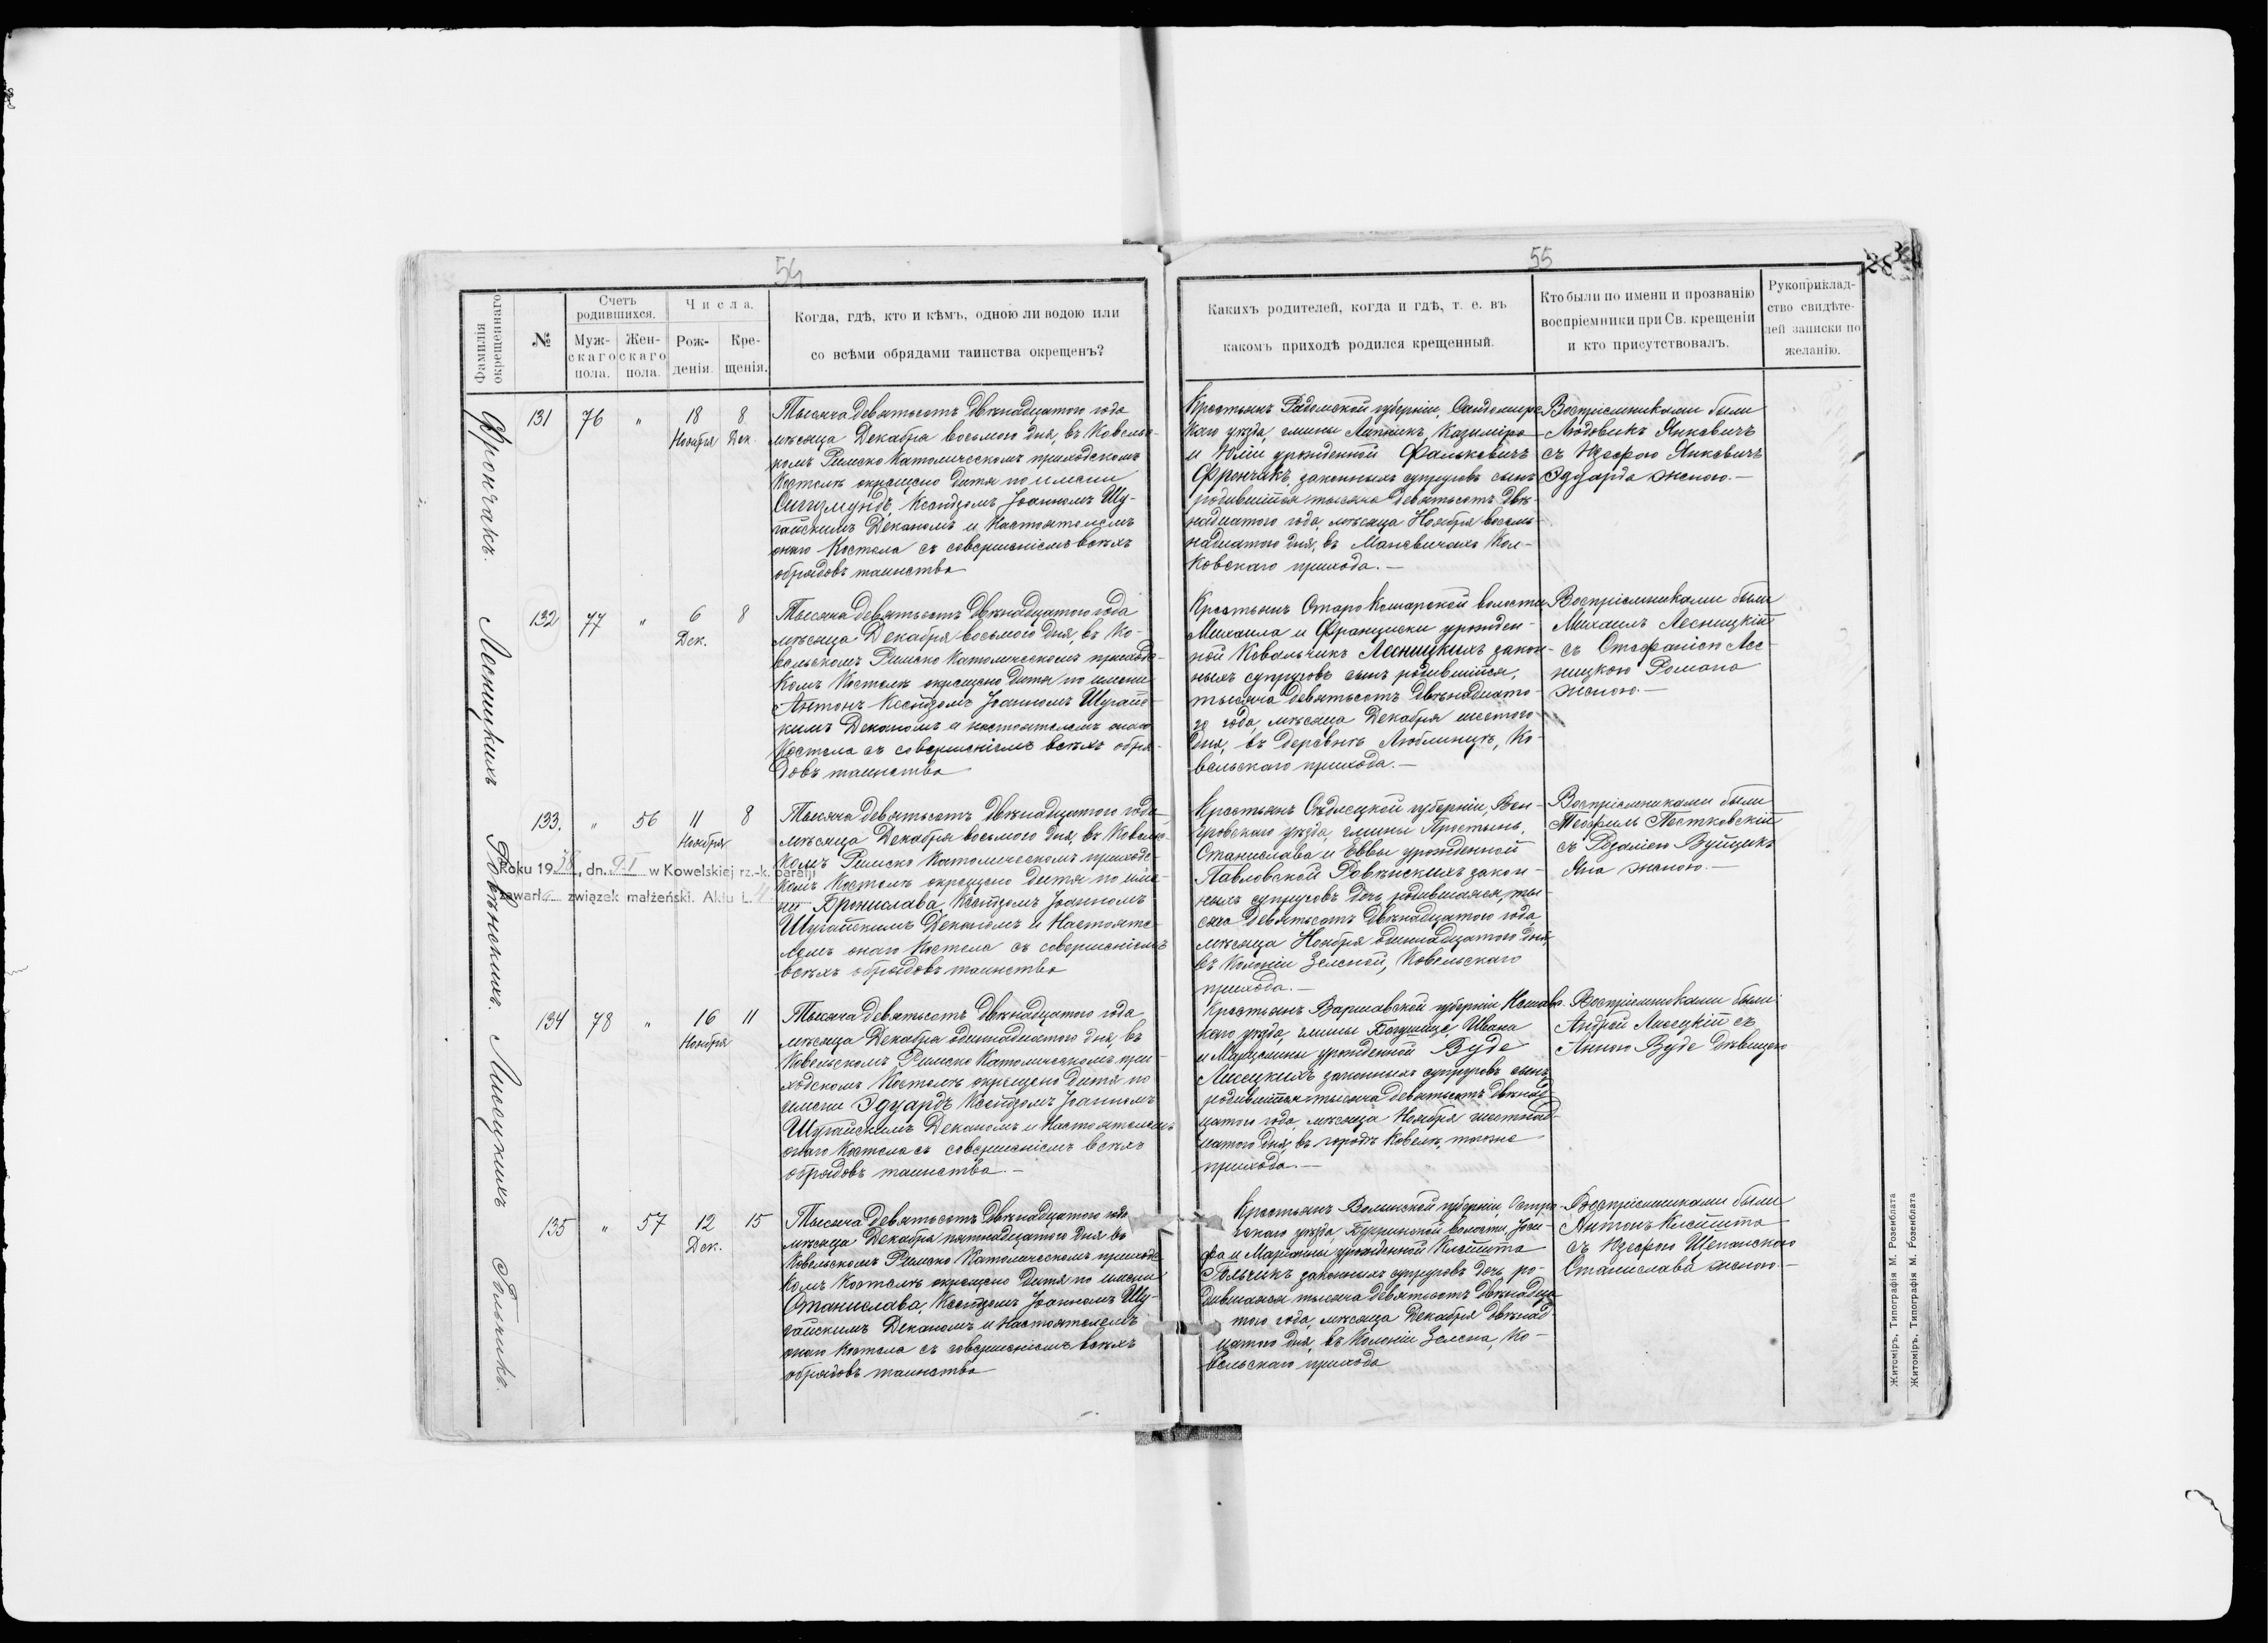 54
Фамилія
окрещеннаго
№
Счетъ
родившихся.
Муж-
скаго
пола.
Жен-
скаго
пола.
Числа.
Рож-
денія.
Кре-
щенія.
Когда, гдѣ, кто и кѣмъ, одною ли водою или
со всѣми обрядами таинства окрещенъ?
Фрончакъ.
131
76
"
18
Ноября
8
Дек.
Тысяча девятьсотъ двѣнадцатого года
мѣсяца Декабря восьмого дня, въ Ковельс-
комъ Римско Католическомъ приходскомъ
Костелѣ окрещено дитя по имени
Сигизмундъ, Ксендзомъ Іоанномъ Шу-
гайскимъ Деканомъ и Настоятелемъ
онаго Костела съ совершеніемъ всѣхъ
обрядовъ таинства
Лесницкихъ
132
77
"
6
Дек.
8
Тысяча девятьсотъ двѣнадцатого года
мѣсяца Декабря восьмого дня, въ Ко-
вельскомъ Римско Католическомъ приходс-
комъ Костелѣ окрещено дитя по имени
Антонъ Ксендзомъ Іоанномъ Шугайс-
кимъ Деканомъ и настоятелемъ онаго
Костела съ совершеніемъ всѣхъ обря-
довъ таинства
Ровѣнскихъ.
133.
"
56
11
Ноября
8
Тысяча девятьсотъ двѣнадцатого года
мѣсяца Декабря восьмого дня, въ Ковельс-
комъ Римско Католическомъ приходс-
комъ Костелѣ окрещено дитя по име-
ни Бронислава, Ксендзомъ Іоанномъ
Шугайскимъ Деканомъ и Настояте-
лемъ онаго Костела съ совершеніемъ
всѣхъ обрядовъ таинства
Roku 1938, dn. 9.I w Kowelskiej rz.-k. parafji
zawarła związek małżeński. Aktu L. 4
Лисецкихъ
134
78
"
16
Ноября
11
Тысяча девятьсотъ двѣнадцатого года
мѣсяца Декабря одиннадцатого дня, въ
Ковельскомъ Римско Католическомъ при-
ходскомъ Костелѣ окрещено дитя по
имени Эдуардъ Ксендзомъ Іоанномъ
Шугайскимъ Деканомъ и Настоятелемъ
онаго Костела съ совершеніемъ всѣхъ
обрядовъ таинства.-
135
"
57
12
Дек.
15
Тысяча девятьсотъ двѣнадцатого года
мѣсяца Декабря пятнадцатого дня въ
Ковельскомъ Римско Католическомъ приходс-
комъ Костелѣ окрещено дитя по имени
Станислава, Ксендзомъ Іоанномъ Шу-
гайскимъ Деканомъ и Настоятелемъ
онаго Костела съ совершеніемъ всѣхъ
обрядовъ таинства
55
28
Какихъ родителей, когда и гдѣ, т. е. въ
какомъ приходѣ родился крещенный.
Кто были по имени и прозванію
воспріемники при Св. крещеніи
и кто присутствовалъ.
Рукоприклад-
ство свидѣте-
лей записки по
желанію.
Крестьянъ Радомской губерніи, Сандомирс-
каго уѣзда, гмины Казиміра
и Юліи урожденной Фалькевичъ
Фрончакъ, законныхъ супруговъ сынъ
родившійся тысяча девятьсотъ двѣ-
надцатого года, мѣсяца Ноября восем-
надцатого дня, въ Маневичахъ Кол-
ковскаго прихода.-
Воспріемниками были
Людовикъ Янкевичъ
съ Юзефою Янкевичъ
Эдуарда женою.-
Крестьянъ Старо Кошарской волости
Михаила и Франциски урожден-
ной Ковальчикъ Лесницкихъ закон-
ныхъ супруговъ сынъ родившійся,
тысяча девятьсотъ двѣнадцато-
го года, мѣсяца Декабря шестого
дня, въ деревнѣ Люблинцѣ, Ко-
вельскаго прихода.-
Воспріемниками были
Михаилъ Лесницкій
съ Стефаніею Лес-
ницкою Романа
женою.-
Крестьянъ Сѣдлецкой губерніи, Вен-
гровскаго уѣзда, гмины Простынь,
Станислава и Еввы урожденной
Павловской Ровѣнскихъ закон-
ныхъ супруговъ дочь, родившаяся, ты-
сяча девятьсотъ двѣнадцатого года,
мѣсяца Ноября одиннадцатого дня,
въ Колоніи Зеленой, Ковельскаго
прихода.-
Воспріемниками были
Теофиль Пстковскій
съ Розаліею Вуйцикъ
Яна женою.-
Крестьянъ Варшавской губерніи
каго уѣзда, гмины Ивана
и Марцелины урожденной Вуде
Лисецкихъ законныхъ супруговъ сынъ,
родившійся тысяча девятьсотъ двѣнад-
цатого года, мѣсяца Ноября шестнад-
цатого дня, въ городѣ Ковелѣ, тогоже
прихода.-
Воспріемниками были
Андрей Лисецкій съ
Анною Вуде дѣвицею
Крестьянъ Волынской губерніи,
уѣзда, волости, Іоси-
фа и Маріанны урожденной Клейшта
законныхъ супруговъ дочь, ро-
дившаяся тысяча девятьсотъ двѣнадца-
того года, мѣсяца Декабря двѣнад-
цатого дня, въ Колоніи Зелена, Ко-
вельскаго прихода
Воспріемниками были
Антонъ Клейшта
съ Юзефою Щепанскою
Станислава женою.-
Житоміръ, Типографія М. Розенблата
Житоміръ, Типографія М. Розенблата